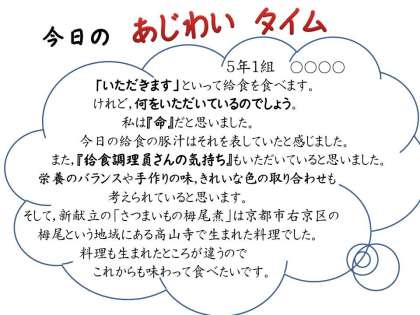 今日の あじわい タイム
5年1組 ○○○○
「いただきます」といって給食を食べます。
けれど,何をいただいているのでしょう。
私は『命』だと思いました。
今日の給食の豚汁はそれを表していたと感じました。
また,『給食調理員さんの気持ち』もいただいていると思いました。
栄養のバランスや手作りの味,きれいな色の取り合わせも
考えられていると思います。
そして,新献立の「さつまいもの栂尾煮」は京都市右京区の
栂尾という地域にある高山寺で生まれた料理でした。
料理も生まれたところが違うので
これからも味わって食べたいです。